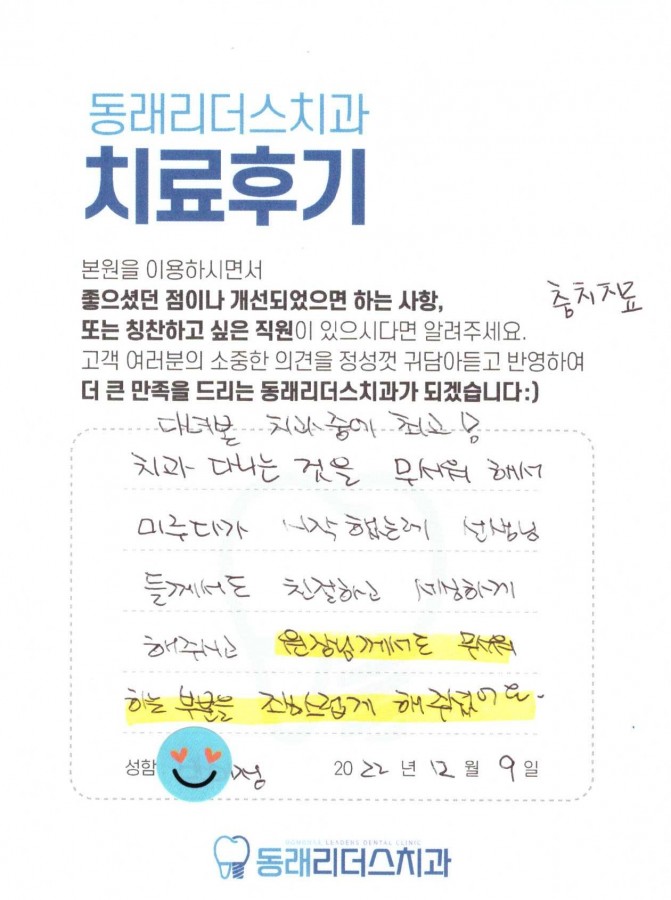 동래리더스치과
치료후기
본원을 이용하시면서
좋으셨던 점이나 개선되었으면 하는 사항,
충치치료
또는 칭찬하고 싶은 직원이 있으시다면 알려주세요.
고객 여러분의 소중한 의견을 정성껏 귀담아듣고 반영하여
더 큰 만족을 드리는 동래리더스치과가 되겠습니다:)
다녀본 치과 중에 최고!
치과 다니는 것을 무서워 해서
미루다가 시작했는데 선생님
들께서도 친절하고 세심하게
해주시고 원장님께서도 무서워
하는 부분을 조심스럽게 해주셨어요.
성함 정 2022년 12월 9일
LEADERS DENTAL CLINIC
동래리더스치과